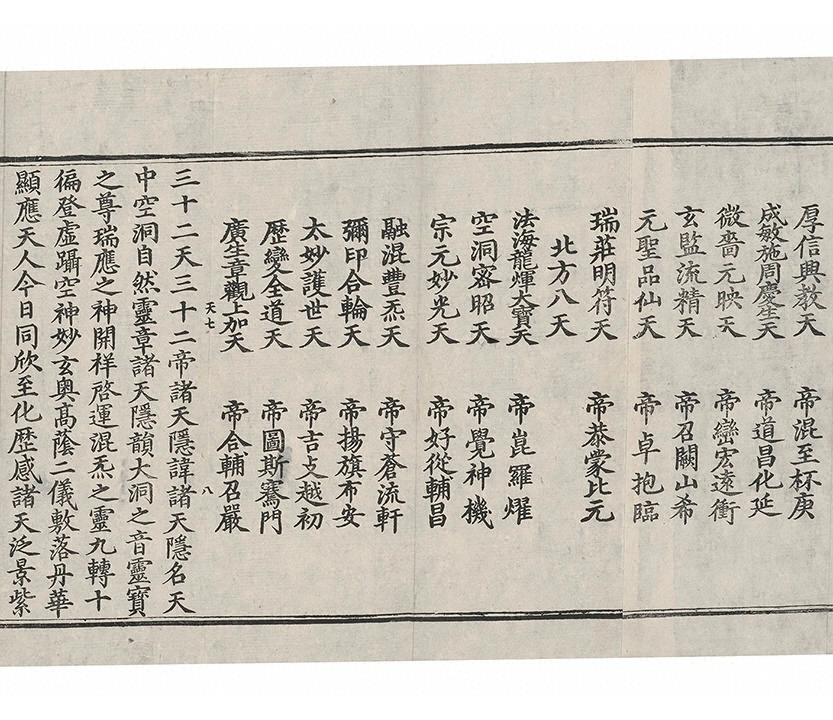 厚信興教天 帝混至杯庚
成敏施周慶生天 帝道昌化延
微嗇元映天 帝巒宏遠衝
玄監流精天 帝召闕山希
元聖品仙天 帝卓抱臨
瑞莊明符天 帝恭蒙比元
北方八天
法海龍煇大寶天 帝崑羅燿
空洞密昭天 帝覺神機
宗元妙光天 帝好從輔昌
融混豐炁天 帝守蒼流軒
彌印合輪天 帝揚旗布安
太妙護世天 帝吉支越初
歷變全道天 帝圖斯騫門
廣生章觀上加天 帝合輔召嚴
天七 八
三十二天三十二帝諸天隱諱諸天隱名天
中空洞自然靈章諸天隱韻大洞之音靈寶
之尊瑞應之神開祥啓運混炁之靈九轉十
徧登虛躡空神妙玄奧高蔭二儀敷落丹華
顯應天人今日同欣至化歷感諸天泛景紫